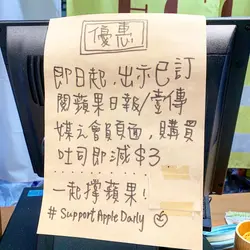 優惠
即日起,出示已訂
閱蘋果日報/壹傳
媒元會員頁面,購買
吐司即減$3
一起撐蘋果!
# Support Apple Daily